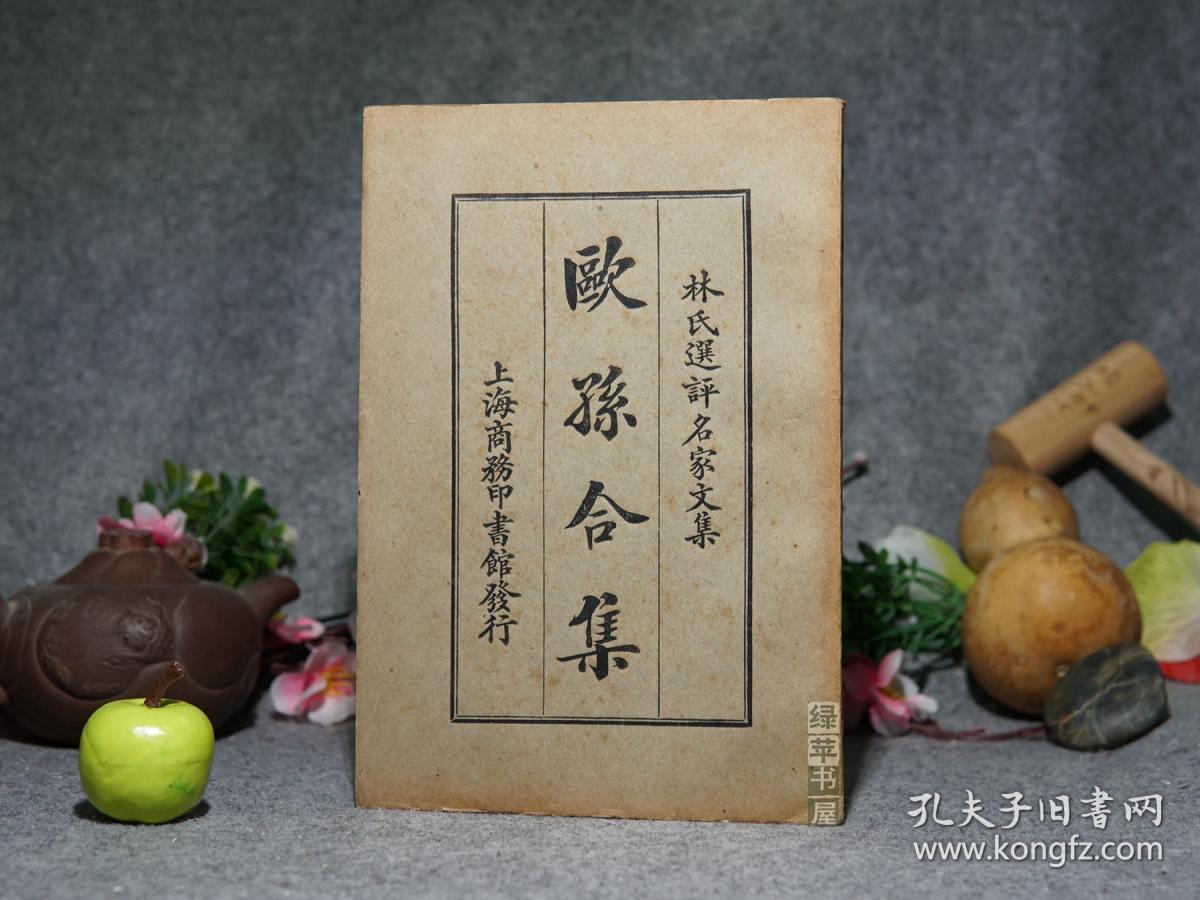 林氏選評名家文集
歐孫合集
上海商務印書館發行
绿苹书屋
孔夫子旧书网
www.kongfz.com